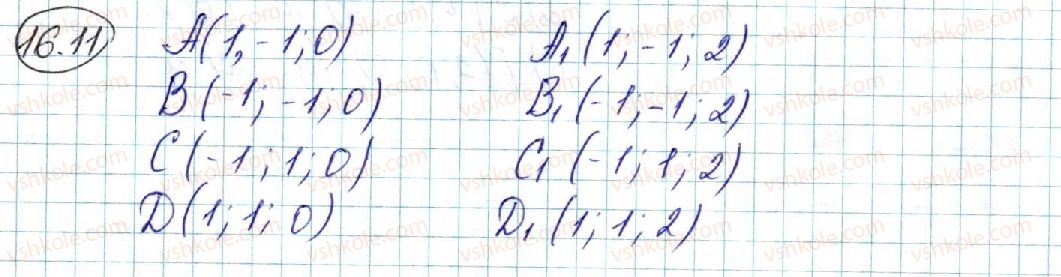 16.11 A(1,-1;0) A₁(1;-1;2)
B(-1;-1;0) B₁(-1;-1;2)
C(-1;1;0) C₁(-1;1;2)
D(1;1;0) D₁(1;1;2)
vshkole.com